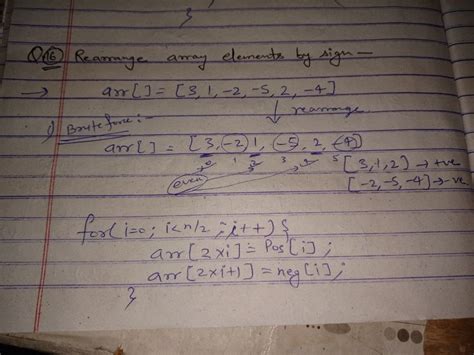 }
Q16 Rearrange array elements by sign -
→ arr[] = [3, 1, -2, -5, 2, -4]
↓ rearrange
1) Bruteforce:-
arr[] = [3, -2, 1, -5, 2, -4]
0 1 2 3 4 5
even
[3, 1, 2] → +ve
[-2, -5, -4] → -ve
for(i=0; i<n/2; i++) {
arr[2xi] = Pos[i];
arr[2xi+1] = neg[i];
}